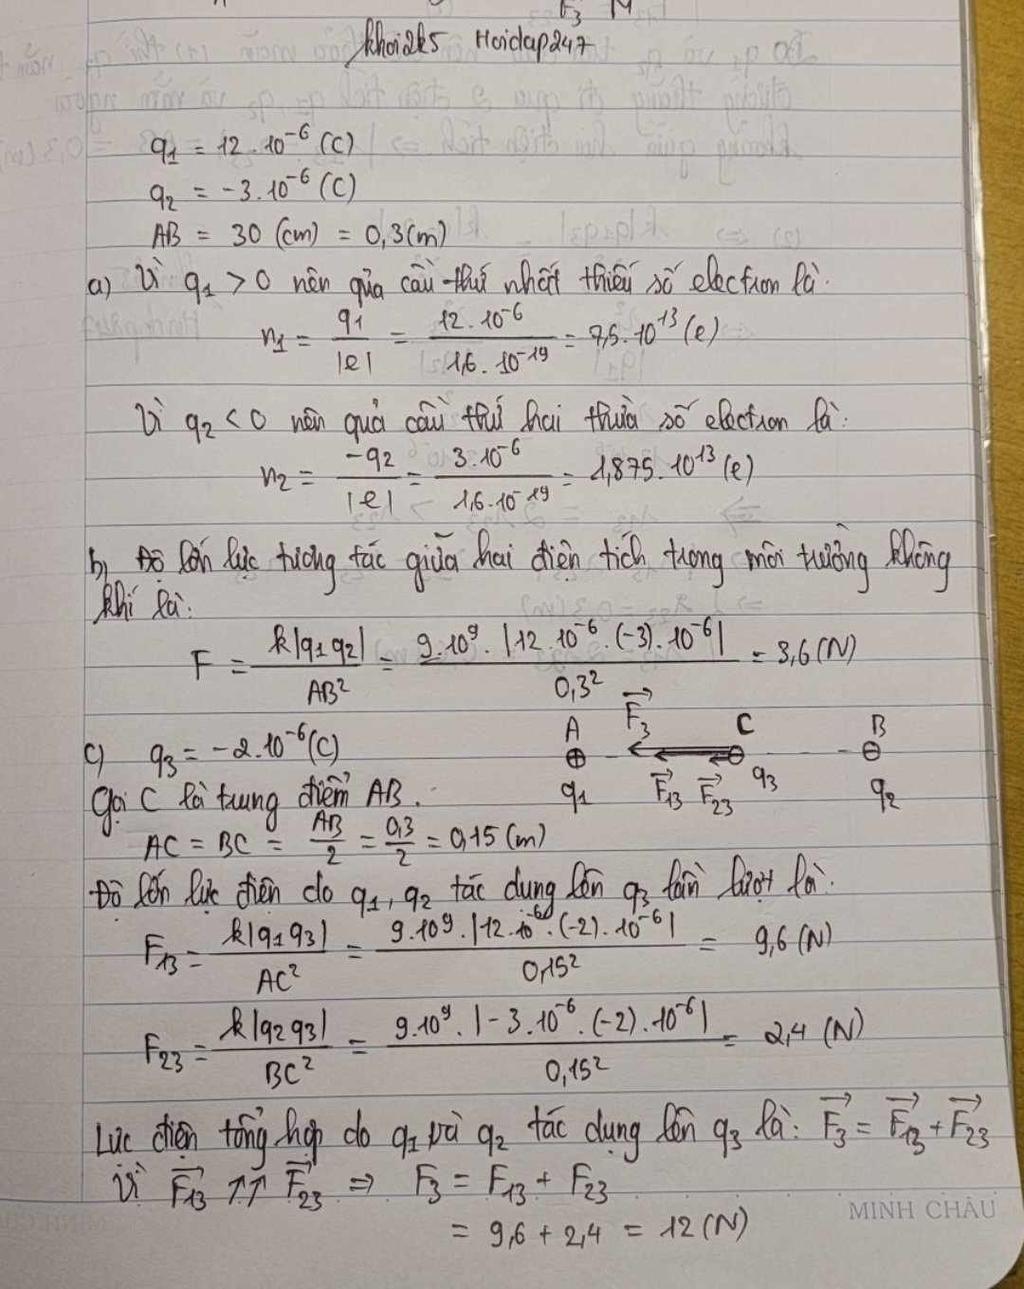 F₃ M
khoi2k5 Hoidap247
q₁ = 12.10⁻⁶ (C)
q₂ = -3.10⁻⁶ (C)
AB = 30 (cm) = 0,3(m)
a) Vì q₁ > 0 nên quả cầu thứ nhất thiếu số electron là:
n₁ = q₁/|e| = 12.10⁻⁶/1,6.10⁻¹⁹ = 7,5.10¹³ (e)
Vì q₂ < 0 nên quả cầu thứ hai thừa số electron là:
n₂ = -q₂/|e| = 3.10⁻⁶/1,6.10⁻¹⁹ = 1,875.10¹³ (e)
b) Độ lớn lực tương tác giữa hai điện tích trong môi trường không
khí là:
F = k|q₁q₂|/AB² = 9.10⁹.|12.10⁻⁶.(-3).10⁻⁶|/0,3² = 3,6 (N)
c) q₃ = -2.10⁻⁶(C)
A F₃ C B
q₁ F₁₃ F₂₃ q₃ q₂
Gọi C là trung điểm AB.
AC = BC = AB/2 = 0,3/2 = 0,15 (m)
Độ lớn lực điện do q₁, q₂ tác dụng lên q₃ lần lượt là:
F₁₃ = k|q₁q₃|/AC² = 9.10⁹.|12.10⁻⁶.(-2).10⁻⁶|/0,15² = 9,6 (N)
F₂₃ = k|q₂q₃|/BC² = 9.10⁹.|-3.10⁻⁶.(-2).10⁻⁶|/0,15² = 2,4 (N)
Lực điện tổng hợp do q₁ và q₂ tác dụng lên q₃ là: F₃ = F₁₃ + F₂₃
Vì F₁₃ ↑↑ F₂₃ ⇒ F₃ = F₁₃ + F₂₃
= 9,6 + 2,4 = 12 (N)
MINH CHÂU